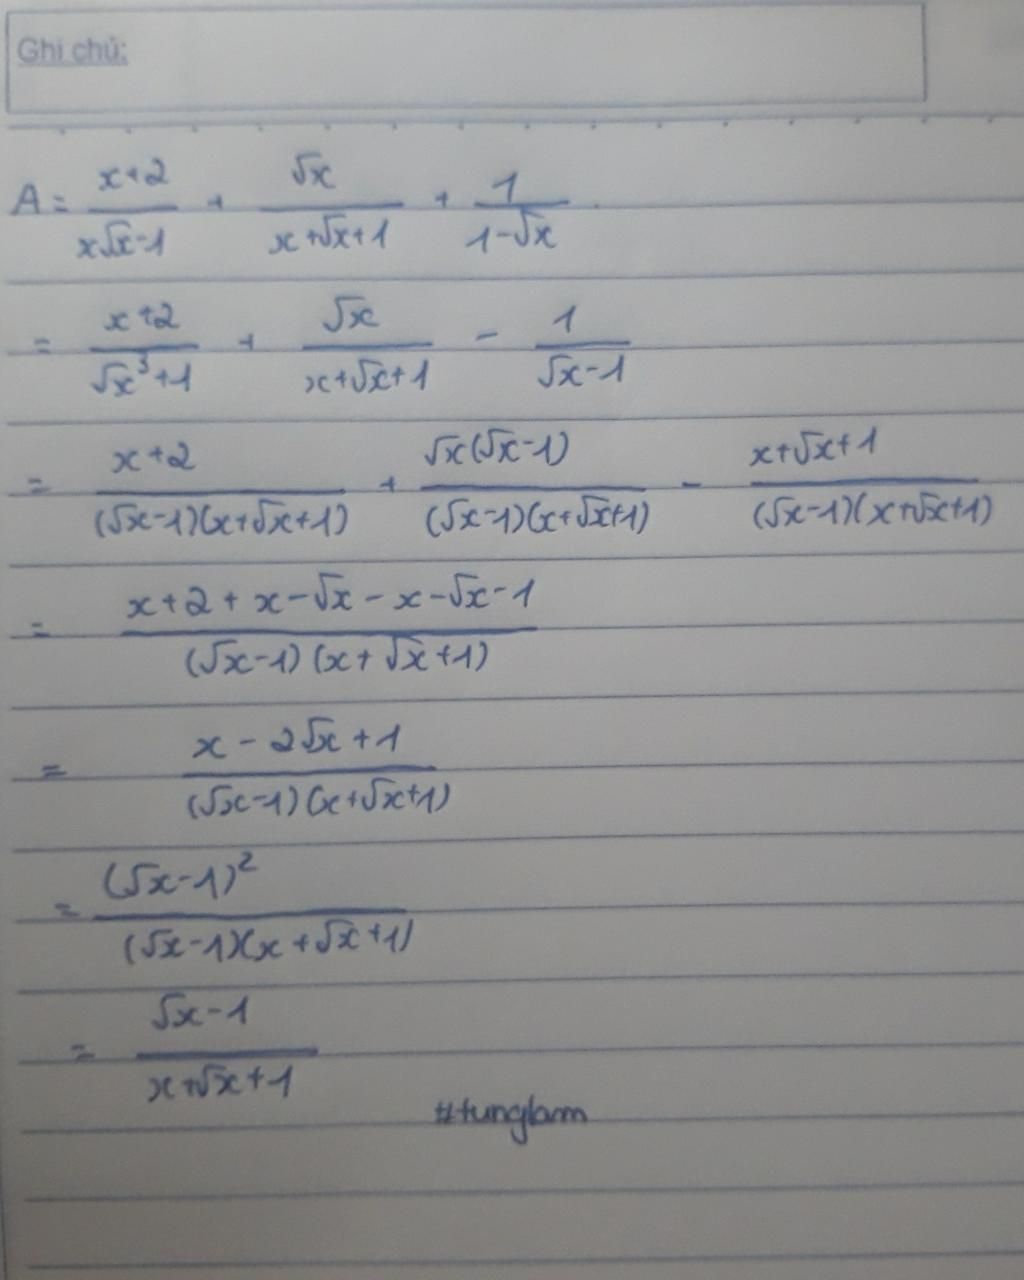 Ghi chú:
A = \frac{x+2}{x\sqrt{x}-1} + \frac{\sqrt{x}}{x+\sqrt{x}+1} + \frac{1}{1-\sqrt{x}}
= \frac{x+2}{\sqrt{x}^3+1} + \frac{\sqrt{x}}{x+\sqrt{x}+1} - \frac{1}{\sqrt{x}-1}
= \frac{x+2}{(\sqrt{x}-1)(x+\sqrt{x}+1)} + \frac{\sqrt{x}(\sqrt{x}-1)}{(\sqrt{x}-1)(x+\sqrt{x}+1)} - \frac{x+\sqrt{x}+1}{(\sqrt{x}-1)(x+\sqrt{x}+1)}
= \frac{x+2+x-\sqrt{x}-x-\sqrt{x}-1}{(\sqrt{x}-1)(x+\sqrt{x}+1)}
= \frac{x-2\sqrt{x}+1}{(\sqrt{x}-1)(x+\sqrt{x}+1)}
= \frac{(\sqrt{x}-1)^2}{(\sqrt{x}-1)(x+\sqrt{x}+1)}
= \frac{\sqrt{x}-1}{x+\sqrt{x}+1}
#tunglam